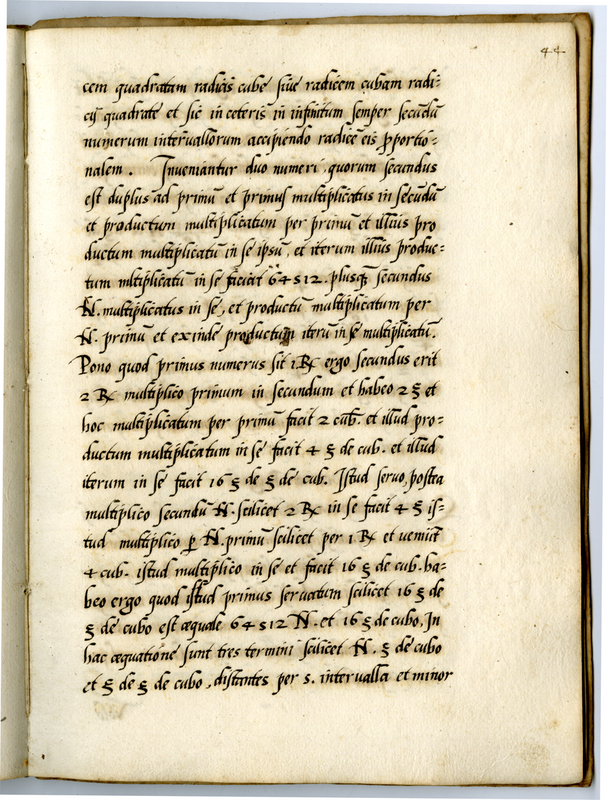 44
cem quadratam radicis cubę siue radicem cubam radi-
cis quadratę et sic in ceteris in infinitum semper secūdū
numerum interuallorum accipiendo radicē eis ꝓportio-
nalem. Inueniantur duo numeri quorum secundus
est duplus ad primū et primus multiplicatus in secūdū
et productum multiplicatum per primū et illius pro
ductum multiplicatū in se ipsū, et iterum illius produc-
tum mltiplicatū in se faciat 64512. plusq̃ secundus
N̄. multiplicatus in se, et productū multiplicatum per
N̄. primū et exinde productum iterū in se multiplicatū.
Pono quod primus numerus sit 1. ℞ ergo secundus erit
2 ℞ multiplico primum in secundum et habeo 2 ʒ et
hoc multiplicatum per primū facit 2 cub̄. et illud pro-
ductum multiplicatum in se facit 4 ʒ de cub. et illud
iterum in se facit 16 ʒ de ʒ de cub. Istud seruo, postea
multiplico secundū N̄. scilicet 2 ℞ in se facit 4 ʒ is-
tud multiplico ꝑ N̄. primū scilicet per 1 ℞ et veniūt
4 cub. istud multiplico in se et facit 16 ʒ de cub. ha-
beo ergo quod istud primus seruatum scilicet 16 ʒ de
ʒ de cubo est æquale 64512 N̄. et 16 ʒ de cubo. In
hac æquatione sunt tres termini scilicet N̄. ʒ de cubo
et ʒ de ʒ de cubo, distantes per 5. interualla et minor